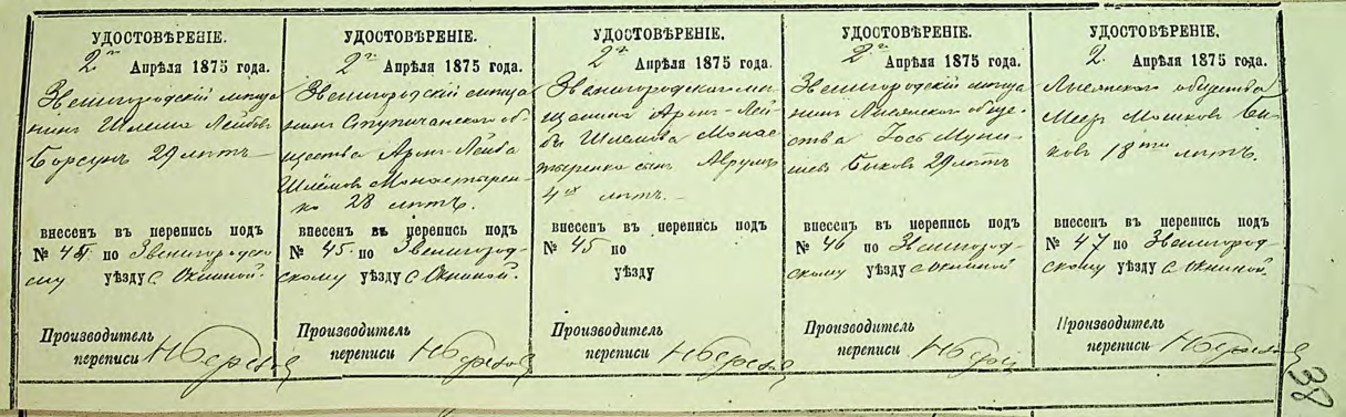 УДОСТОВѢРЕНІЕ.
2го Апрѣля 1875 года.
Звенигородскій мѣща
нинъ Шлема Лейбовъ
Борсунъ 29 лѣтъ
внесенъ въ перепись подъ
№ 45 по Звенигородско
му уѣзду с. Окниной.
Производитель
переписи
УДОСТОВѢРЕНІЕ.
2го Апрѣля 1875 года.
Звенигородскій мѣща
нинъ Ступичанскаго об
щества Аронъ-Лейба
Шлёмовъ Монастырен
ко 28 лѣтъ.
внесенъ въ перепись подъ
№ 45. по Звенигород-
скому уѣзду с. Окниной.
Производитель
переписи
УДОСТОВѢРЕНІЕ.
2го Апрѣля 1875 года.
Звенигородскаго мѣ
щанина Аронъ-Лей-
бы Шлемова Монас
тыренка сынъ Аврумъ
4хъ лѣтъ.
внесенъ въ перепись подъ
№ 45 по
уѣзду
Производитель
переписи
УДОСТОВѢРЕНІЕ.
2го Апрѣля 1875 года.
Звенигородскій мѣща
нинъ Лисянскаго обще-
ства Іось
Быковъ 29 лѣтъ
внесенъ въ перепись подъ
№ 46 по Звенигород-
скому уѣзду с Окниной
Производитель
переписи
УДОСТОВѢРЕНІЕ.
2. Апрѣля 1875 года.
Лисянскаго общества
Меер Мошковъ Бы-
ковъ 18ти лѣтъ.
внесенъ въ перепись подъ
№ 47 по Звенигород-
скому уѣзду с Окниной.
Производитель
переписи
38